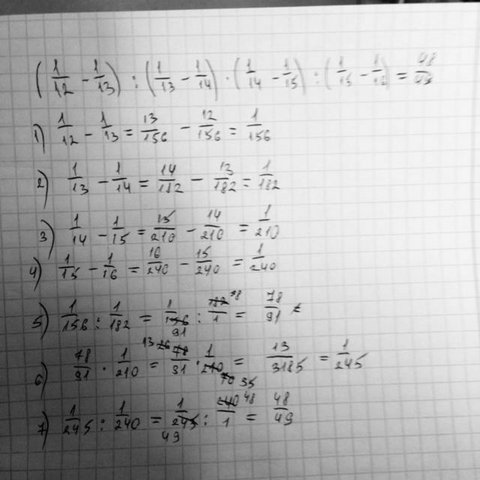 (1/12 - 1/13) : (1/13 - 1/14) · (1/14 - 1/15) : (1/15 - 1/16) = 48/49
1) 1/12 - 1/13 = 13/156 - 12/156 = 1/156
2) 1/13 - 1/14 = 14/182 - 13/182 = 1/182
3) 1/14 - 1/15 = 15/210 - 14/210 = 1/210
4) 1/15 - 1/16 = 16/240 - 15/240 = 1/240
5) 1/156 : 1/182 = 1/156 91 : 182 78/1 = 78/91
6) 78/91 · 1/210 = 13 26 78/91 · 1/210 70 35 = 13/3185 = 1/245
7) 1/245 : 1/240 = 1/245 49 : 240 48/1 = 48/49